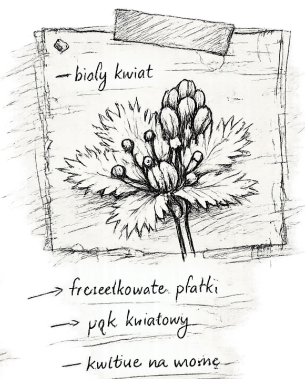 — bioły kwiat
→ frczeelkowate płatki
→ pąk kwiatowy
— kwltiue na womę